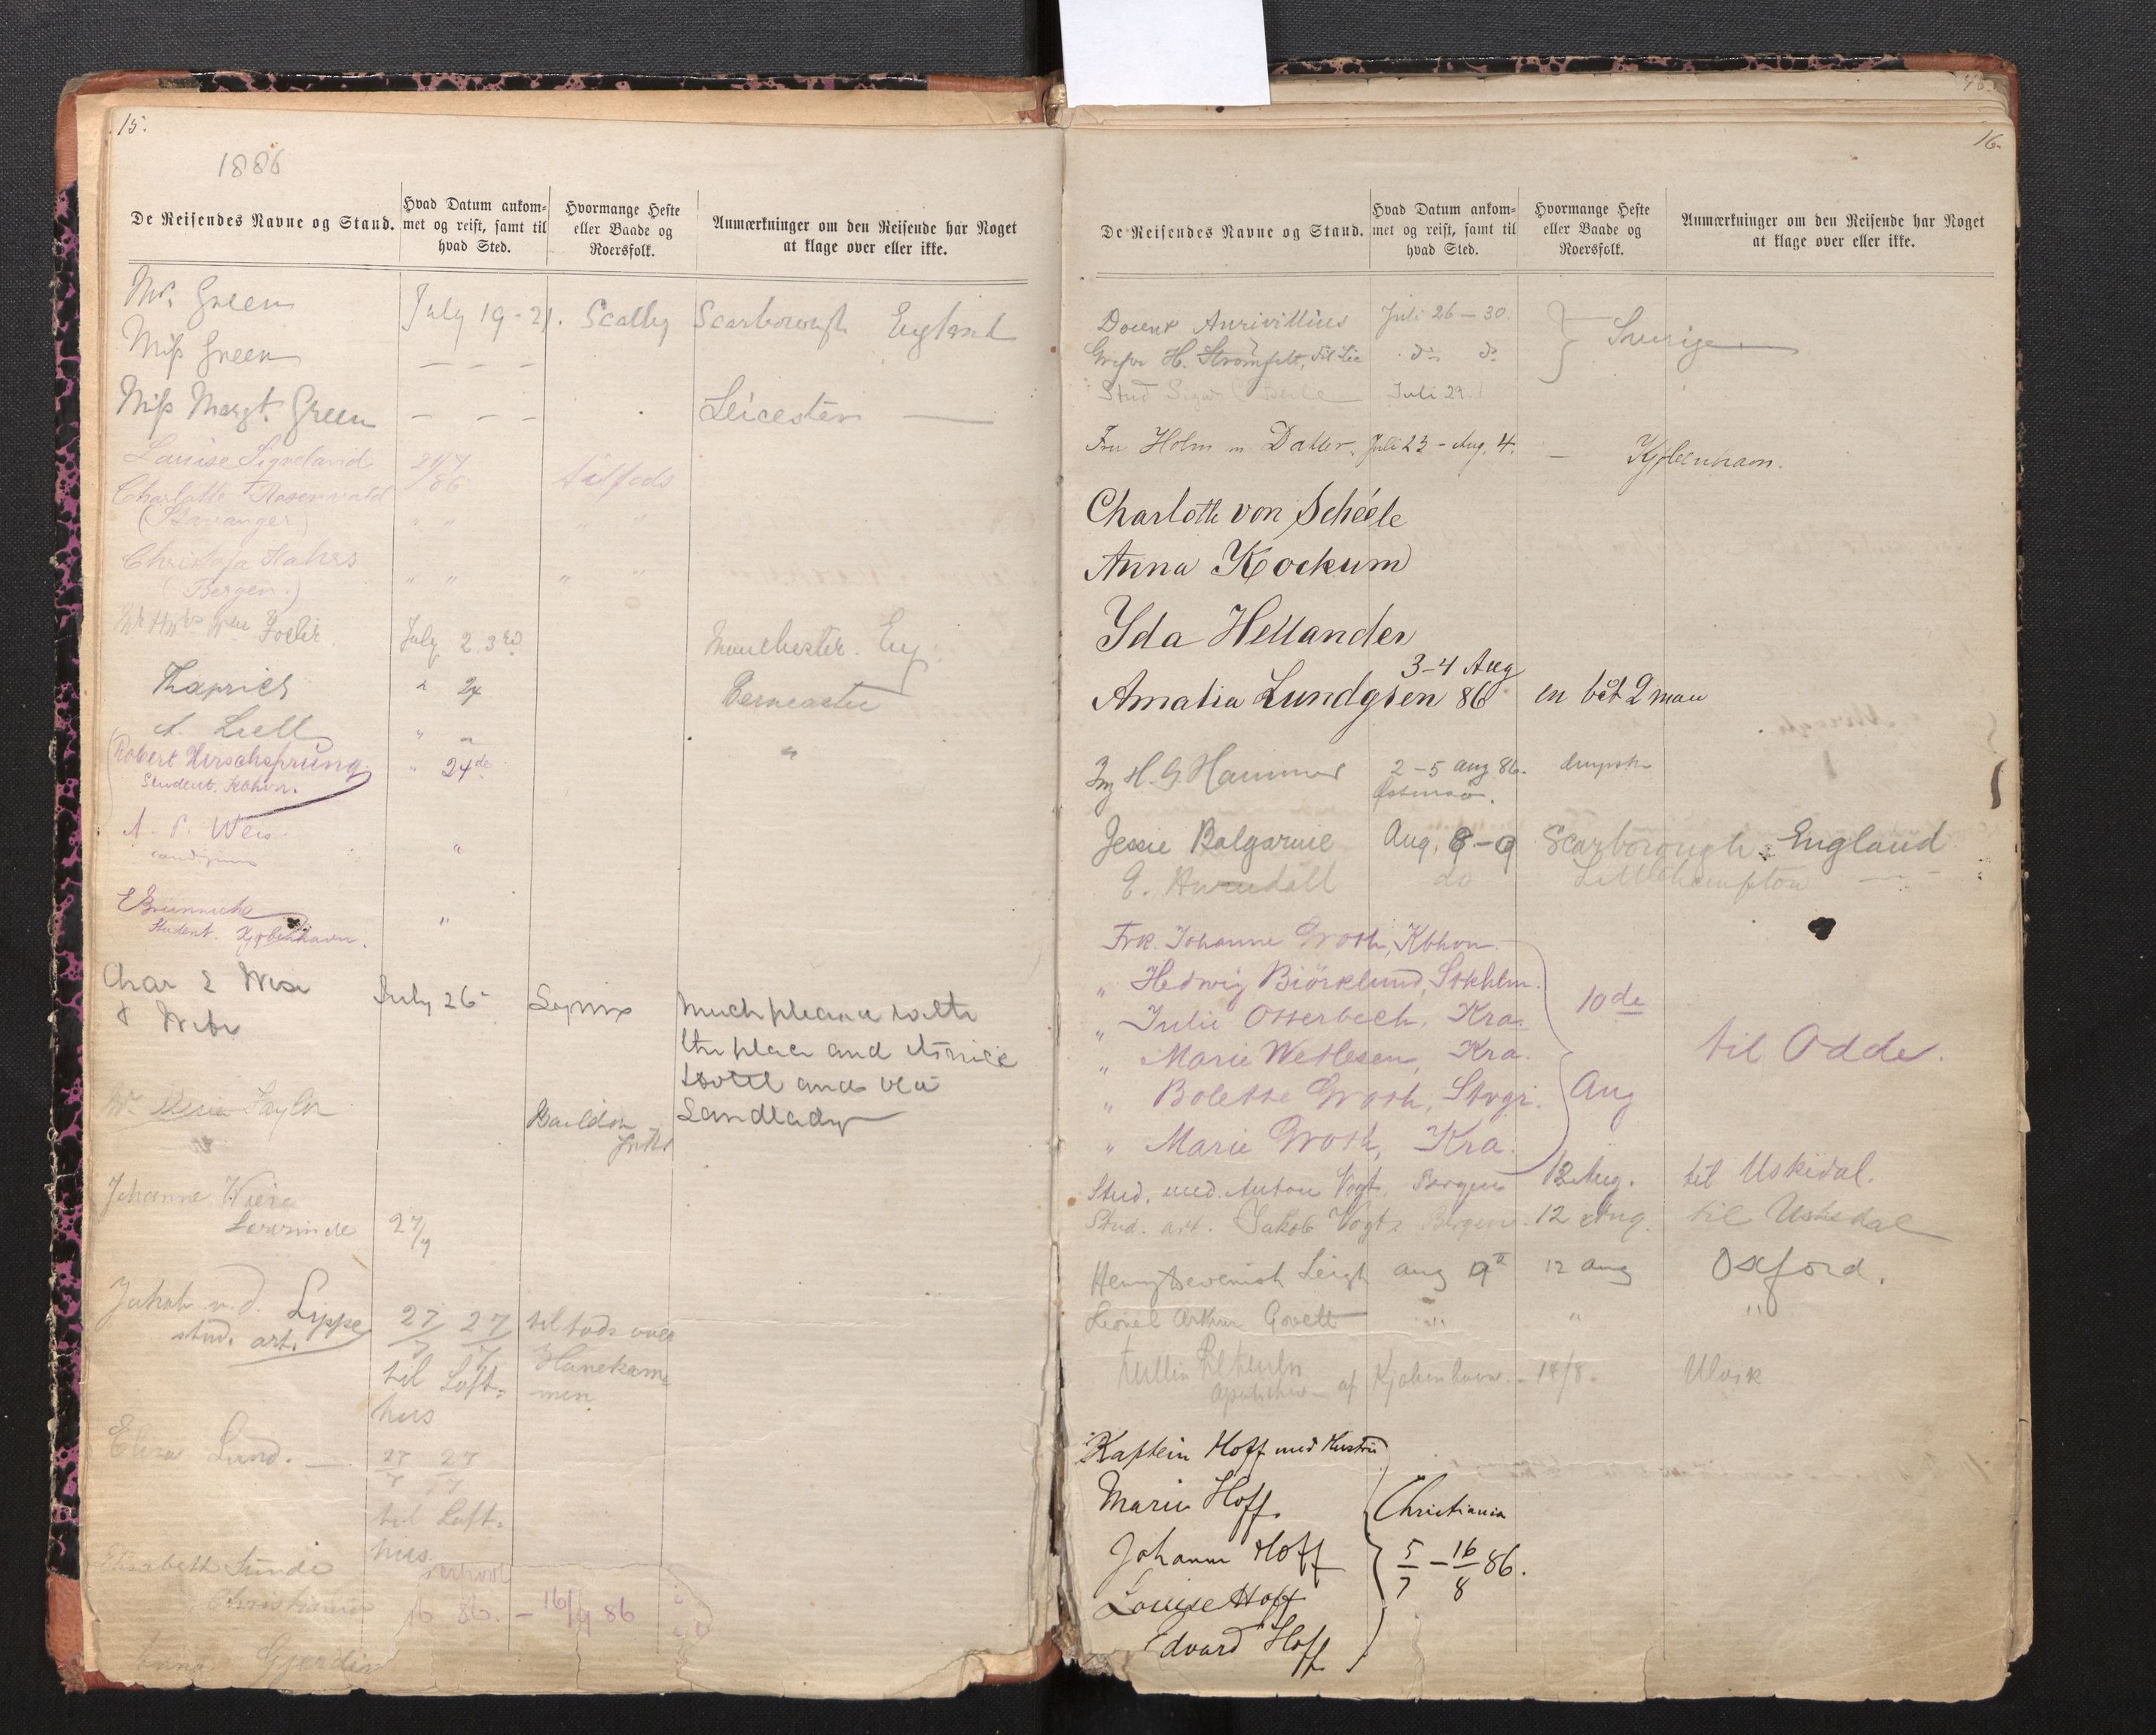 15.
1886
De Reisendes Navne og Stand.
Hvad Datum ankom-
met og reist, samt til
hvad Sted.
Hvormange Heste
eller Baade og
Roersfolk.
Anmærkninger om den Reisende har Noget
at klage over eller ikke.
Mr. Green July 19-21. Scalby Scarborough England
Miss Green — — —
Miss Margt. Green — — — Leicester —
Louise Signeland 24/7 86 tilfods
Charlotte Rosenvold
(Stavanger) " " " "
Hahrs
(Bergen.) " " " "
July 23rd Manchester. Eng.
" 24
A. Liell " "
Robert Hirschsprung. " 24de "
Student. Kbhvn.
A. P. Weis "
E Brünniche "
Student. Kjøbenhavn.
Char E Wise July 26
& Wife
Much pleased with
the place and its nice
hotel and
Landlady
Mr. Taylor Baildon
Johanne Wiese
Lærerinde 27/7
Jakob v. d. Lippe
stud. art. 27/7 27/7 til Loft-
hus
til fods over
Hanekam-
men
Elisa Lund. — 27/7 27/7
til Loft-
hus.
Elisabeth Sunde
Christiania
16 86. — 16/9 86
Anna Gjerdin
16.
De Reisendes Navne og Stand.
Hvad Datum ankom-
met og reist, samt til
hvad Sted.
Hvormange Heste
eller Baade og
Roersfolk.
Anmærkninger om den Reisende har Noget
at klage over eller ikke.
Docent Aurivillius Juli 26 — 30. Sverige
Grefve H. Strömfelt, Fil Lic do do
Stud Juli 29.
Fru Holm m. Datter. Juli 23 - Aug. 4. — Kjøbenhavn.
Charlotte von Schéele
Anna Kockum
Ida Hellander
3-4 Aug
Amalia Lundgren 86 en båt 2 man
Ing H. G Hammer 2-5 aug 86. dampsk
Jessie Balgarnie Aug. 8-9 Scarborough England
E. Arundell do Littlehampton —
Frk. Johanne Groth, Kbhvn.
" Hedwig Biörklund, Stkhlm.
" Julie Otterbech, Kra.
" Marie Wetlesen, Kra.
" Bolette Groth, Stvgr.
" Marie Groth, Kra.
10de
Aug
til Odde.
Stud. med. Anton Vogt. Bergen 12 Aug. til Uskedal.
Stud. art. Jakob Vogt. Bergen. 12 Aug. til Uskedal
Henry Devenish Leigh aug 9th 12 aug Oxford.
Lionel Arthur Govett " " "
af Kjøbenhavn. - 14/8. Ulvik
Kaptein Hoff med Hustru
Marie Hoff.
Johanne Hoff
Louise Hoff
Edvard Hoff
Christiania
5/7 — 16/8 86.